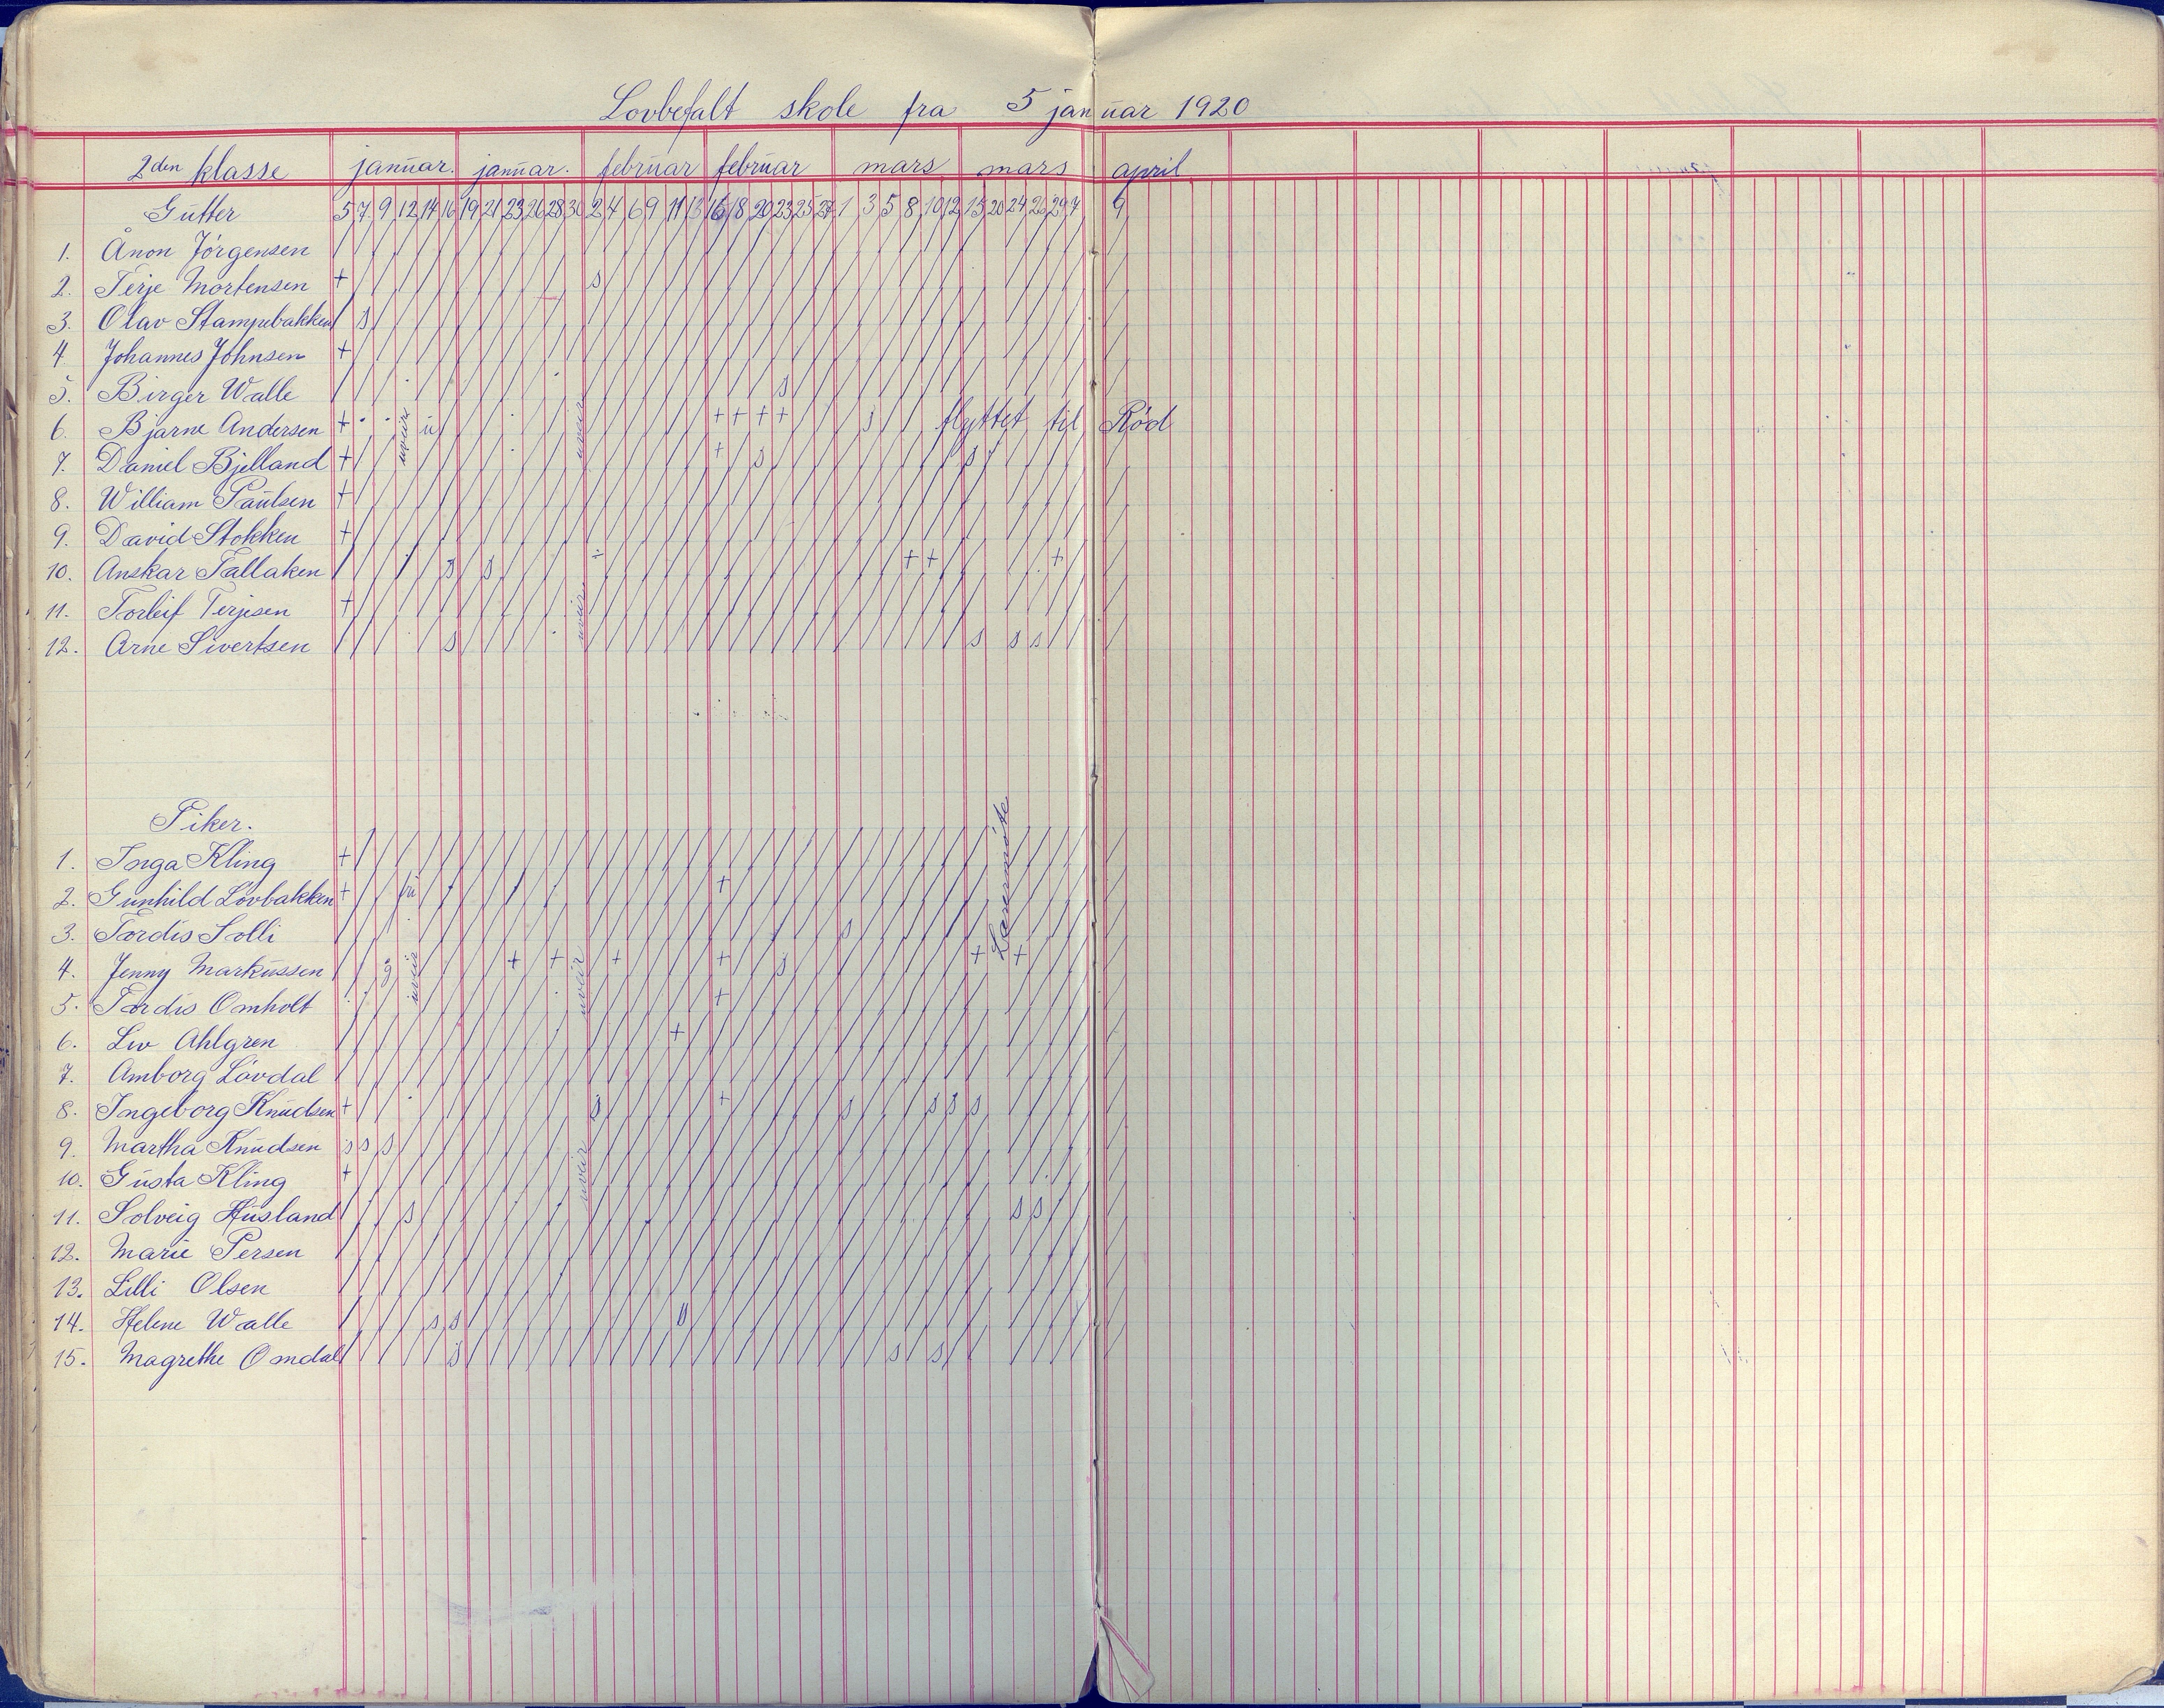 Lovbefalt skole fra 5 januar 1920
2den klasse januar. januar. februar februar mars mars april
Gutter 5 7 9 12 14 16 19 21 23 26 28 30 2 4 6 9 11 13 16 18 20 23 25 27 1 3 5 8 10 12 15 20 24 26 29 7 9
1. Ånon Jörgensen
2. Terje Mortensen + s
3. Olav Stampebakken s
4 Johannes Johnsen +
5. Birger Walle s
6. Bjarne Andersen + u + + + + s flyttet til Rød
uveir
uveir
7. Daniel Bjelland + + s s
8. William Paulsen +
9. David Stokken +
10. Anskar Tallaken s s ÷ + + +
11. Torleif Terjesen +
uveir
12. Arne Sivertsen s s s s
Piker.
Lærermöte
1. Inga Kling +
2. Gunhild Lövbakken + fri +
3. Tordis Solli s
4. Jenny Markussen g + + + + s + +
uveir
uveir
5. Tordis Omholt +
6. Liv Ahlgren +
7. Amborg Lövdal
8. Ingeborg Knudsen + s + s s s s
9. Martha Knudsen s s s
10. Gusta Kling +
uveir
11. Solveig Husland s s s
12. Marie Persen
13. Lilli Olsen
14. Helene Walle s s
15. Magrethe Omdal s s s